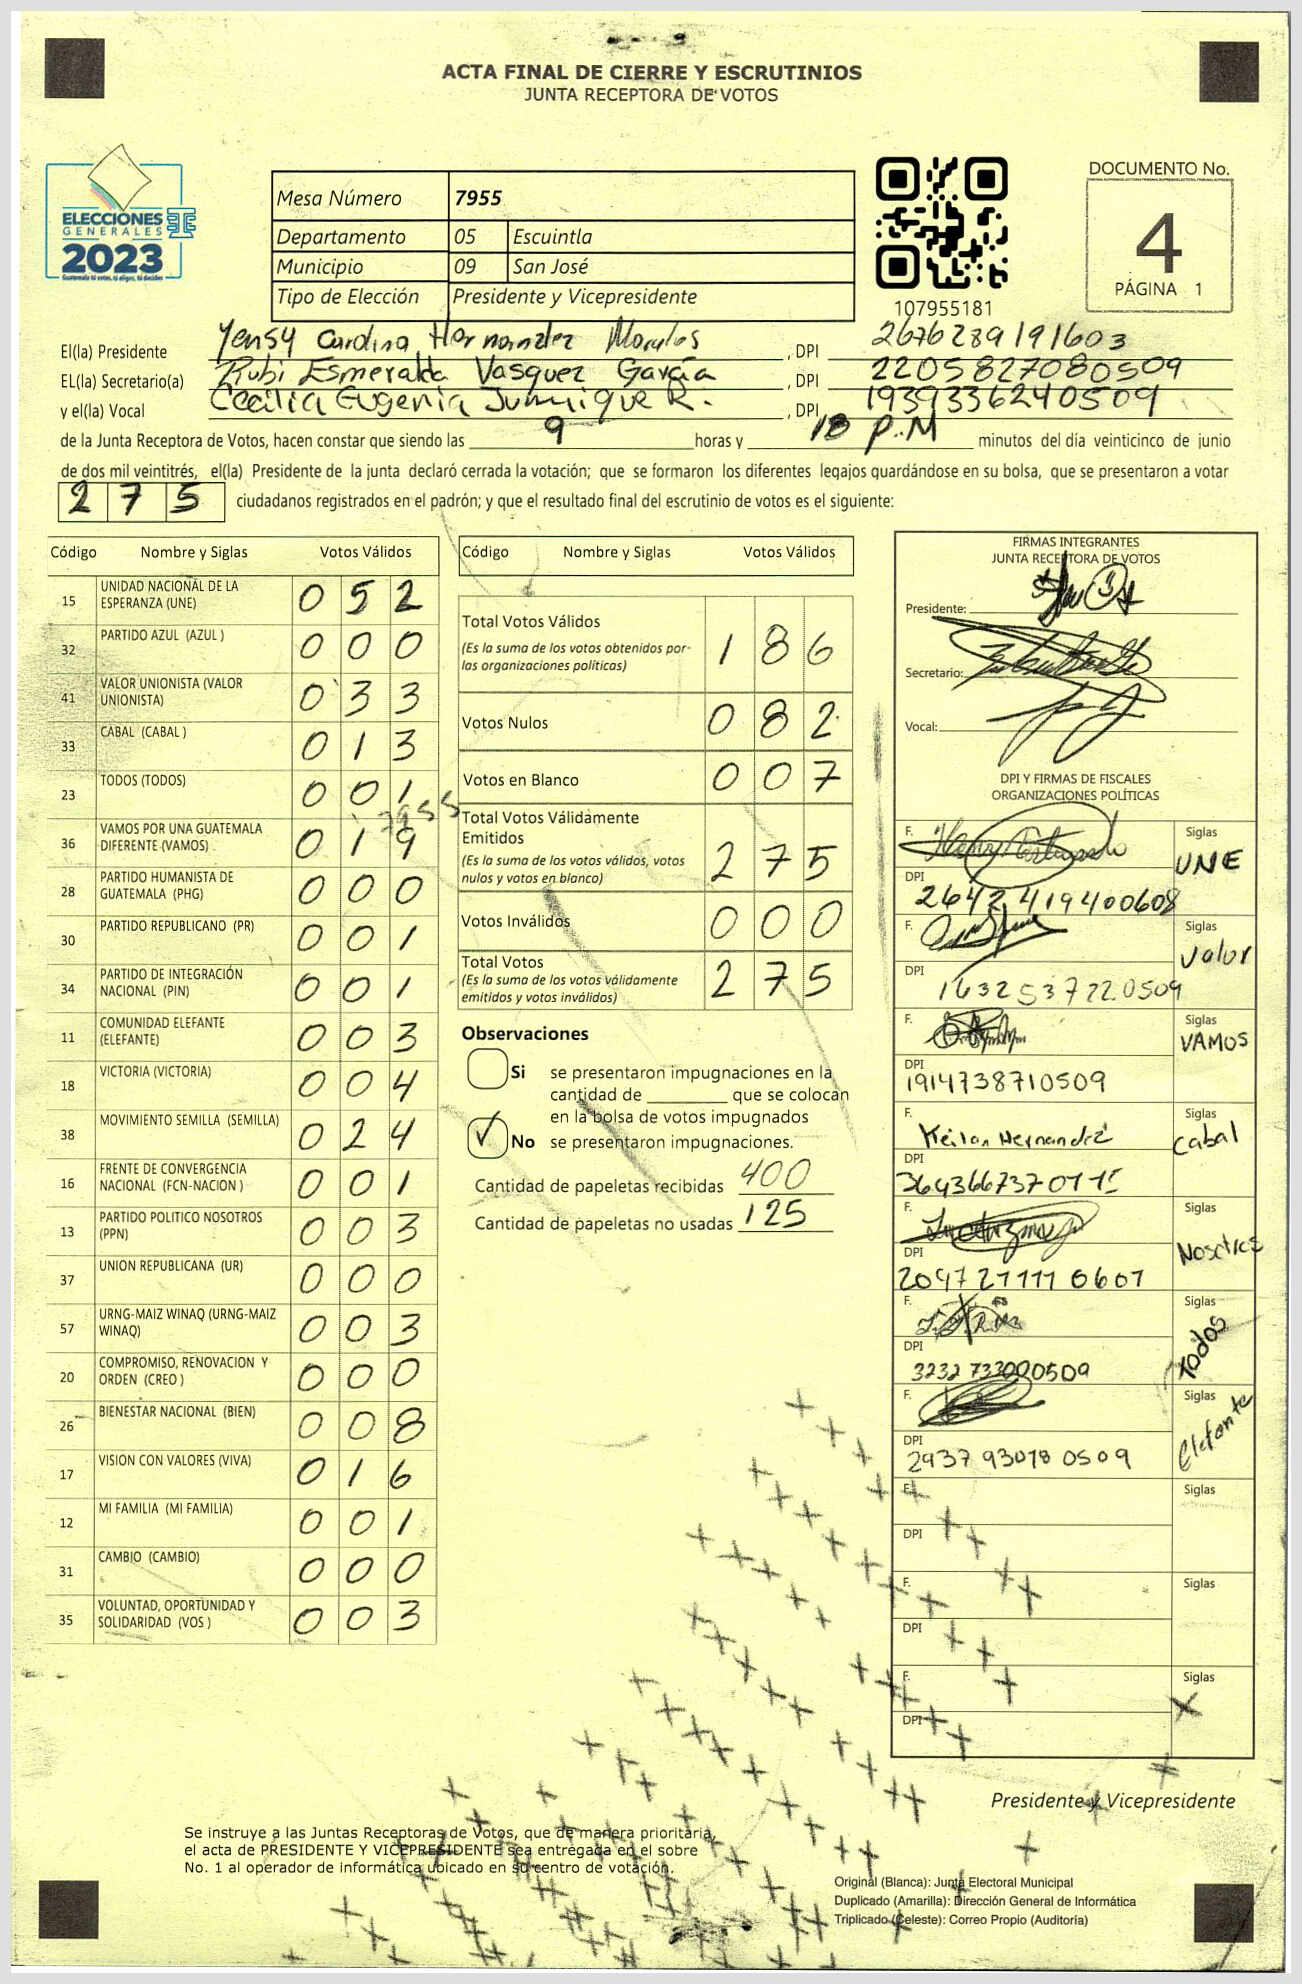 ACTA FINAL DE CIERRE Y ESCRUTINIOS
JUNTA RECEPTORA DE VOTOS
ELECCIONES
GENERALES
2023
Guatemala tú votas, tú eliges, tú decides
Mesa Número 7955
Departamento 05 Escuintla
Municipio 09 San José
Tipo de Elección Presidente y Vicepresidente
107955181
DOCUMENTO No.
4
PÁGINA 1
El(la) Presidente Yensy Carolina Hernandez Morales , DPI 2676289191603
EL(la) Secretario(a) Rubi Esmeralda Vasquez García , DPI 2205827080509
y el(la) Vocal Cecilia Eugenia R. , DPI 1939336240509
de la Junta Receptora de Votos, hacen constar que siendo las 9 horas y 18 P.M minutos del día veinticinco de junio
de dos mil veintitrés, el(la) Presidente de la junta declaró cerrada la votación; que se formaron los diferentes legajos guardándose en su bolsa, que se presentaron a votar
275 ciudadanos registrados en el padrón; y que el resultado final del escrutinio de votos es el siguiente:
Código Nombre y Siglas Votos Válidos
15 UNIDAD NACIONAL DE LA ESPERANZA (UNE) 052
32 PARTIDO AZUL (AZUL ) 000
41 VALOR UNIONISTA (VALOR UNIONISTA) 033
33 CABAL (CABAL ) 013
23 TODOS (TODOS) 001
7955
36 VAMOS POR UNA GUATEMALA DIFERENTE (VAMOS) 019
28 PARTIDO HUMANISTA DE GUATEMALA (PHG) 000
30 PARTIDO REPUBLICANO (PR) 001
34 PARTIDO DE INTEGRACIÓN NACIONAL (PIN) 001
11 COMUNIDAD ELEFANTE (ELEFANTE) 003
18 VICTORIA (VICTORIA) 004
38 MOVIMIENTO SEMILLA (SEMILLA) 024
16 FRENTE DE CONVERGENCIA NACIONAL (FCN-NACION ) 001
13 PARTIDO POLITICO NOSOTROS (PPN) 003
37 UNION REPUBLICANA (UR) 000
57 URNG-MAIZ WINAQ (URNG-MAIZ WINAQ) 003
20 COMPROMISO, RENOVACION Y ORDEN (CREO ) 000
26 BIENESTAR NACIONAL (BIEN) 008
17 VISION CON VALORES (VIVA) 016
12 MI FAMILIA (MI FAMILIA) 001
31 CAMBIO (CAMBIO) 000
35 VOLUNTAD, OPORTUNIDAD Y SOLIDARIDAD (VOS ) 003
Código Nombre y Siglas Votos Válidos
Total Votos Válidos 186
(Es la suma de los votos obtenidos por las organizaciones políticas)
Votos Nulos 082
Votos en Blanco 007
Total Votos Válidamente Emitidos 275
(Es la suma de los votos válidos, votos nulos y votos en blanco)
Votos Inválidos 000
Total Votos 275
(Es la suma de los votos válidamente emitidos y votos inválidos)
Observaciones
Si se presentaron impugnaciones en la
cantidad de ________ que se colocan
en la bolsa de votos impugnados
✓ No se presentaron impugnaciones.
Cantidad de papeletas recibidas 400
Cantidad de papeletas no usadas 125
FIRMAS INTEGRANTES
JUNTA RECEPTORA DE VOTOS
Presidente:
Secretario:
Vocal:
DPI Y FIRMAS DE FISCALES
ORGANIZACIONES POLÍTICAS
F. Siglas UNE
DPI 2642419400608
F. Siglas Valor
DPI 1632537220509
F. Siglas VAMOS
DPI 1914738710509
F. Keilan Hernandez Siglas Cabal
DPI
F. Siglas Nosotros
DPI 2097271110601
F. Siglas Todos
DPI 3232733000509
F. Siglas Elefante
DPI 2937930180509
F. Siglas
DPI
F. Siglas
DPI
F. Siglas
DPI
Presidente y Vicepresidente
Se instruye a las Juntas Receptoras de Votos, que de manera prioritaria,
el acta de PRESIDENTE Y VICEPRESIDENTE sea entregada en el sobre
No. 1 al operador de informática ubicado en su centro de votación.
Original (Blanca): Junta Electoral Municipal
Duplicado (Amarilla): Dirección General de Informática
Triplicado (Celeste): Correo Propio (Auditoría)